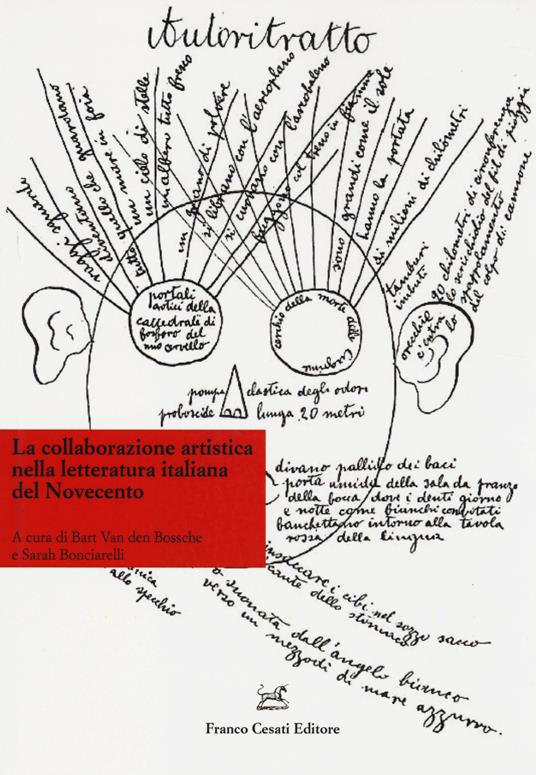 Autoritratto
raggi sguardi
diventano
tutto quello che guardano
un mare in
un cielo di stelle
un albero tutto fresco
un grano di polvere
si librano con l'aeroplano
si cullano con l'arcobaleno
fuggono col treno in fiamma
sono grandi come il sole
hanno la portata
di milioni di chilometri
tamburi
imbuti
orecchie
c'entra
lo
20 chilometri di circonferenza
lo scricchiolio del
spappolamento
del colpo di cannone
portali
ottici della
cattedrale di
fosforo del
mio cervello
cerchio della morte delle
pompa elastica degli odori
proboscide lunga 20 metri
La collaborazione artistica
nella letteratura italiana
del Novecento
A cura di Bart Van den Bossche
e Sarah Bonciarelli
divano pallido dei baci
porta umida della sala da pranzo
della bocca dove i denti giorno
e notte come bianchi convitati
banchettano intorno alla tavola
rossa della lingua
insaccare i cibi nel sozzo sacco
dello stomaco
suonata dall'angelo bianco
verso un mezzodì di mare azzurro.
allo specchio
Franco Cesati Editore